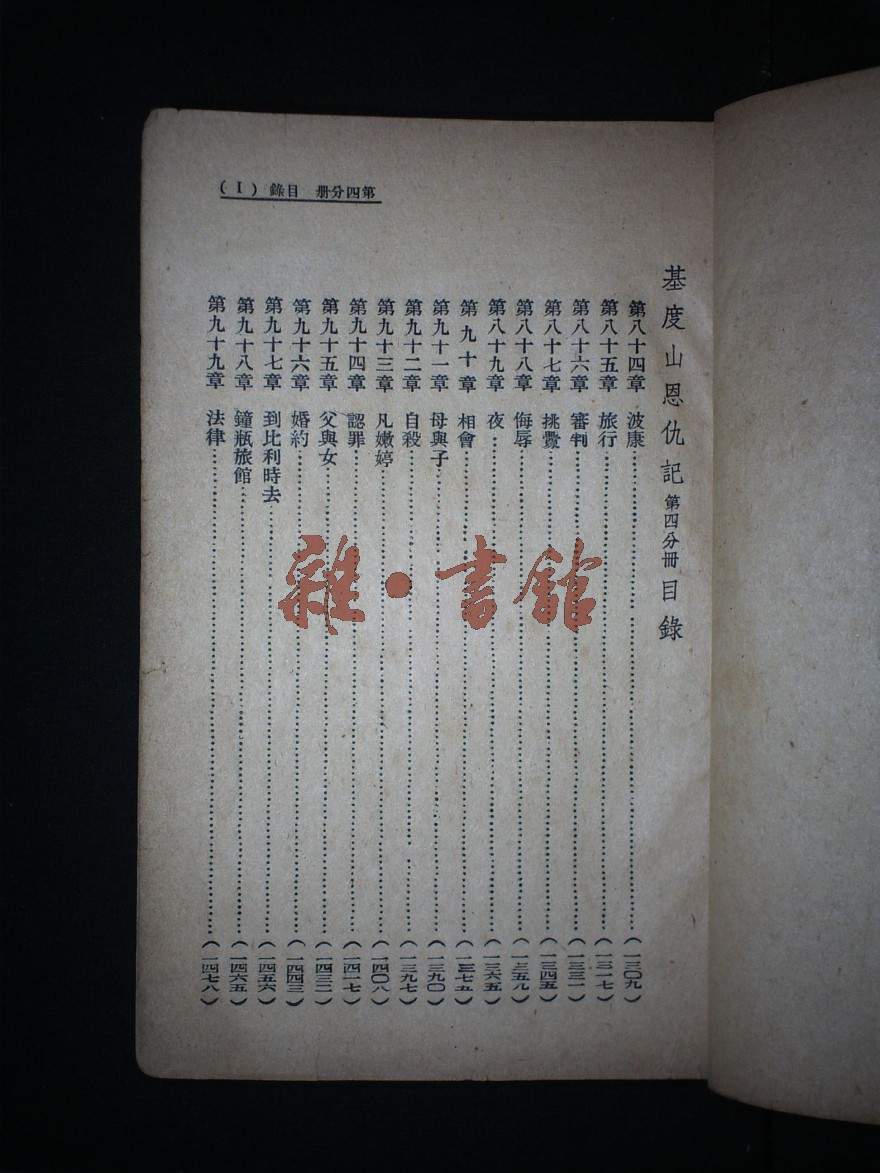 第四分册 目錄 (I)
基度山恩仇記 第四分冊 目錄
第八十四章 波康……(一三〇九)
第八十五章 旅行……(一三一七)
第八十六章 審判……(一三三一)
第八十七章 挑釁……(一三四五)
第八十八章 侮辱……
第八十九章 夜……(一三六五)
第九十章 相會……(一三七五)
第九十一章 母與子……(一三九〇)
第九十二章 自殺……(一三九七)
第九十三章 凡嫩婷……(一四〇八)
第九十四章 認罪……(一四一七)
第九十五章 父與女……(一四三二)
第九十六章 婚約……(一四四三)
第九十七章 到比利時去……(一四五六)
第九十八章 鐘瓶旅館……(一四六五)
第九十九章 法律……(一四七八)
雜·書館